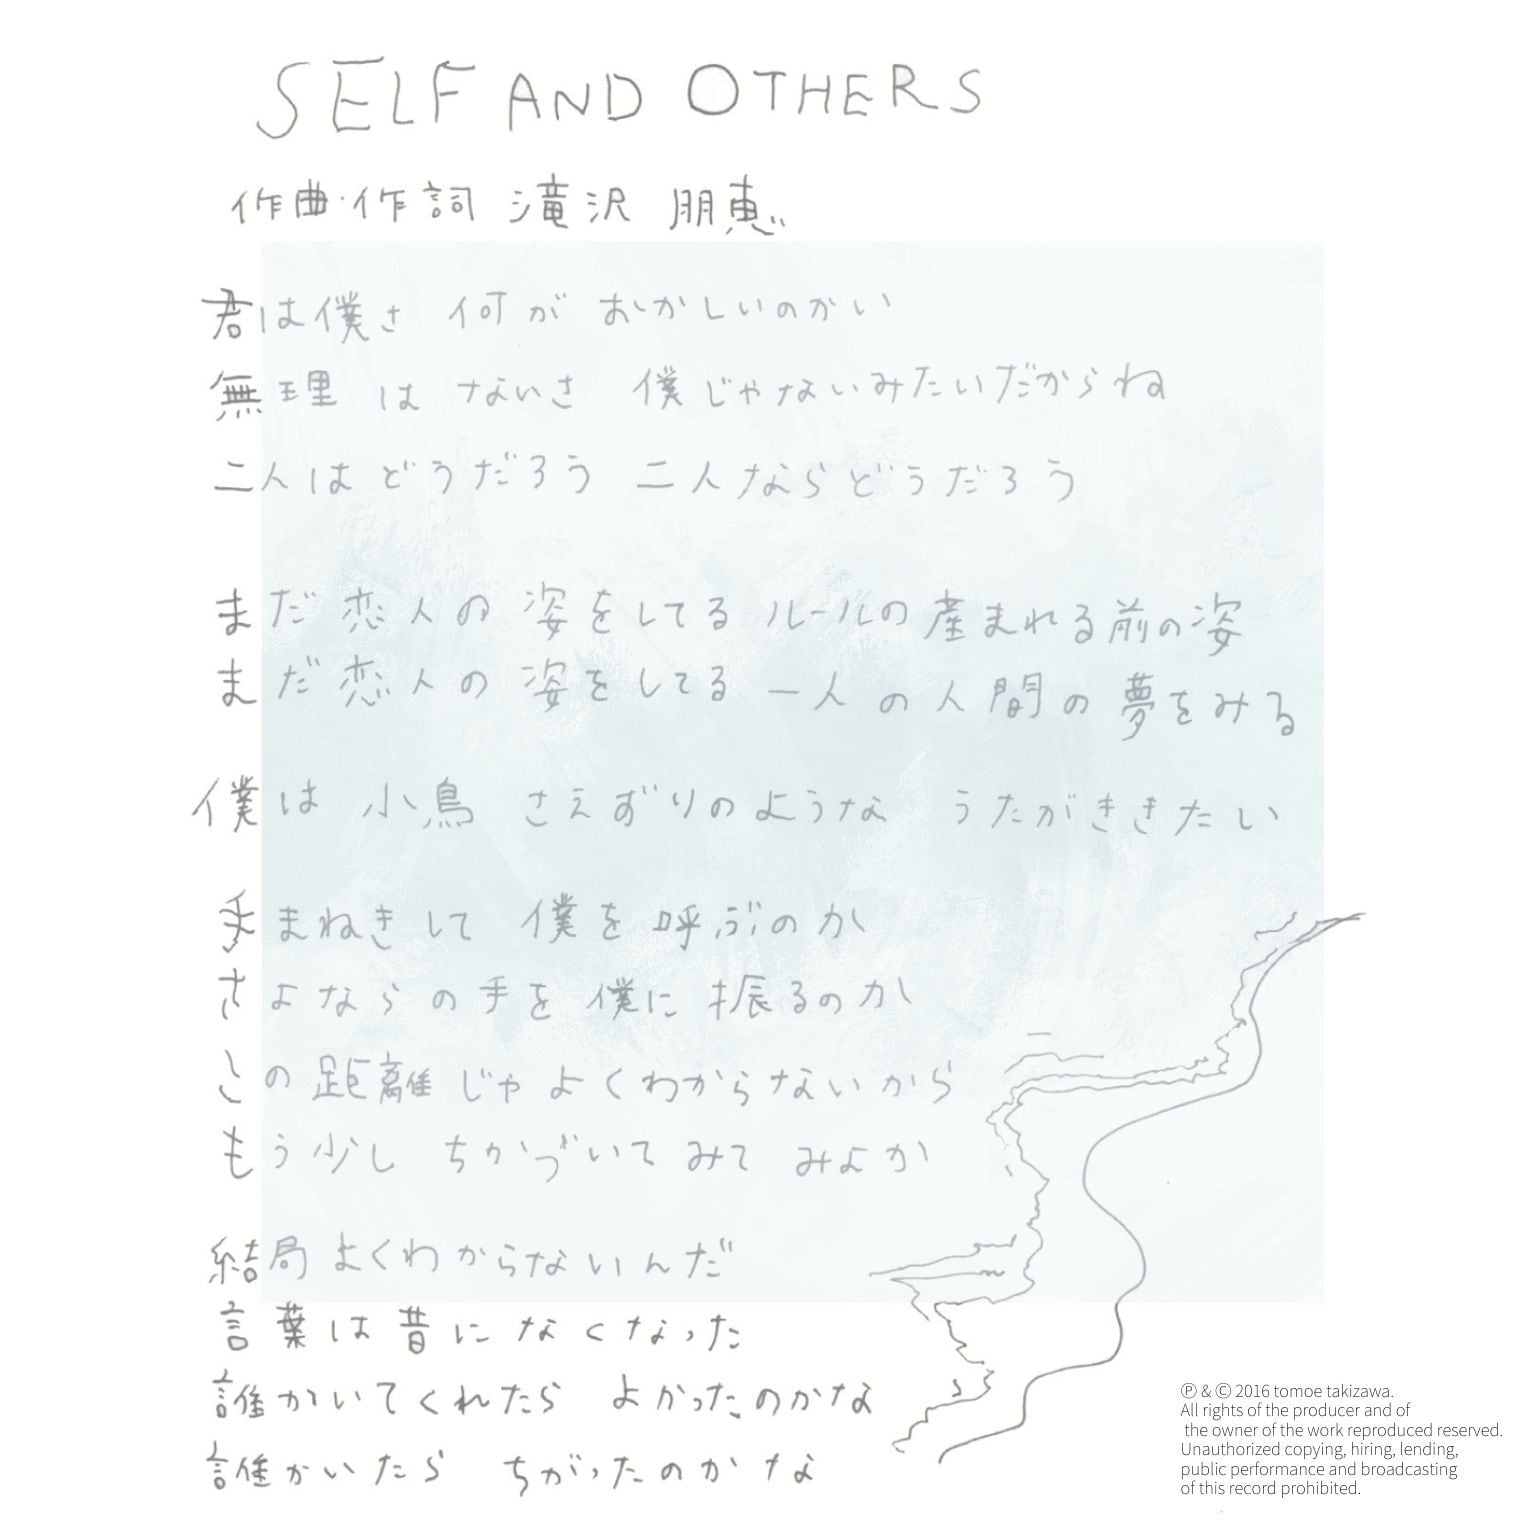 SELF AND OTHERS
作曲・作詞 滝沢 朋恵
君は僕さ 何が おかしいのかい
無理は ないさ 僕じゃないみたいだからね
二人はどうだろう 二人ならどうだろう
まだ恋人の姿をしてる ルールの産まれる前の姿
まだ恋人の姿をしてる 一人の人間の夢をみる
僕は 小鳥 さえずりのような うたがききたい
手まねきして 僕を呼ぶのか
さよならの手を僕に振るのか
この距離じゃよくわからないから
もう少し ちかづいてみて みよか
結局よくわからないんだ
言葉は昔になくなった
誰かいてくれたら よかったのかな
誰かいたら ちがったのかな
Ⓟ & © 2016 tomoe takizawa.
All rights of the producer and of
the owner of the work reproduced reserved.
Unauthorized copying, hiring, lending,
public performance and broadcasting
of this record prohibited.